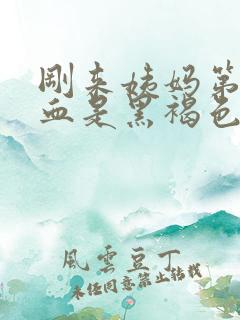 刚来姨妈第
血是黑褐色
風雲豆丁
未经同意禁止转载